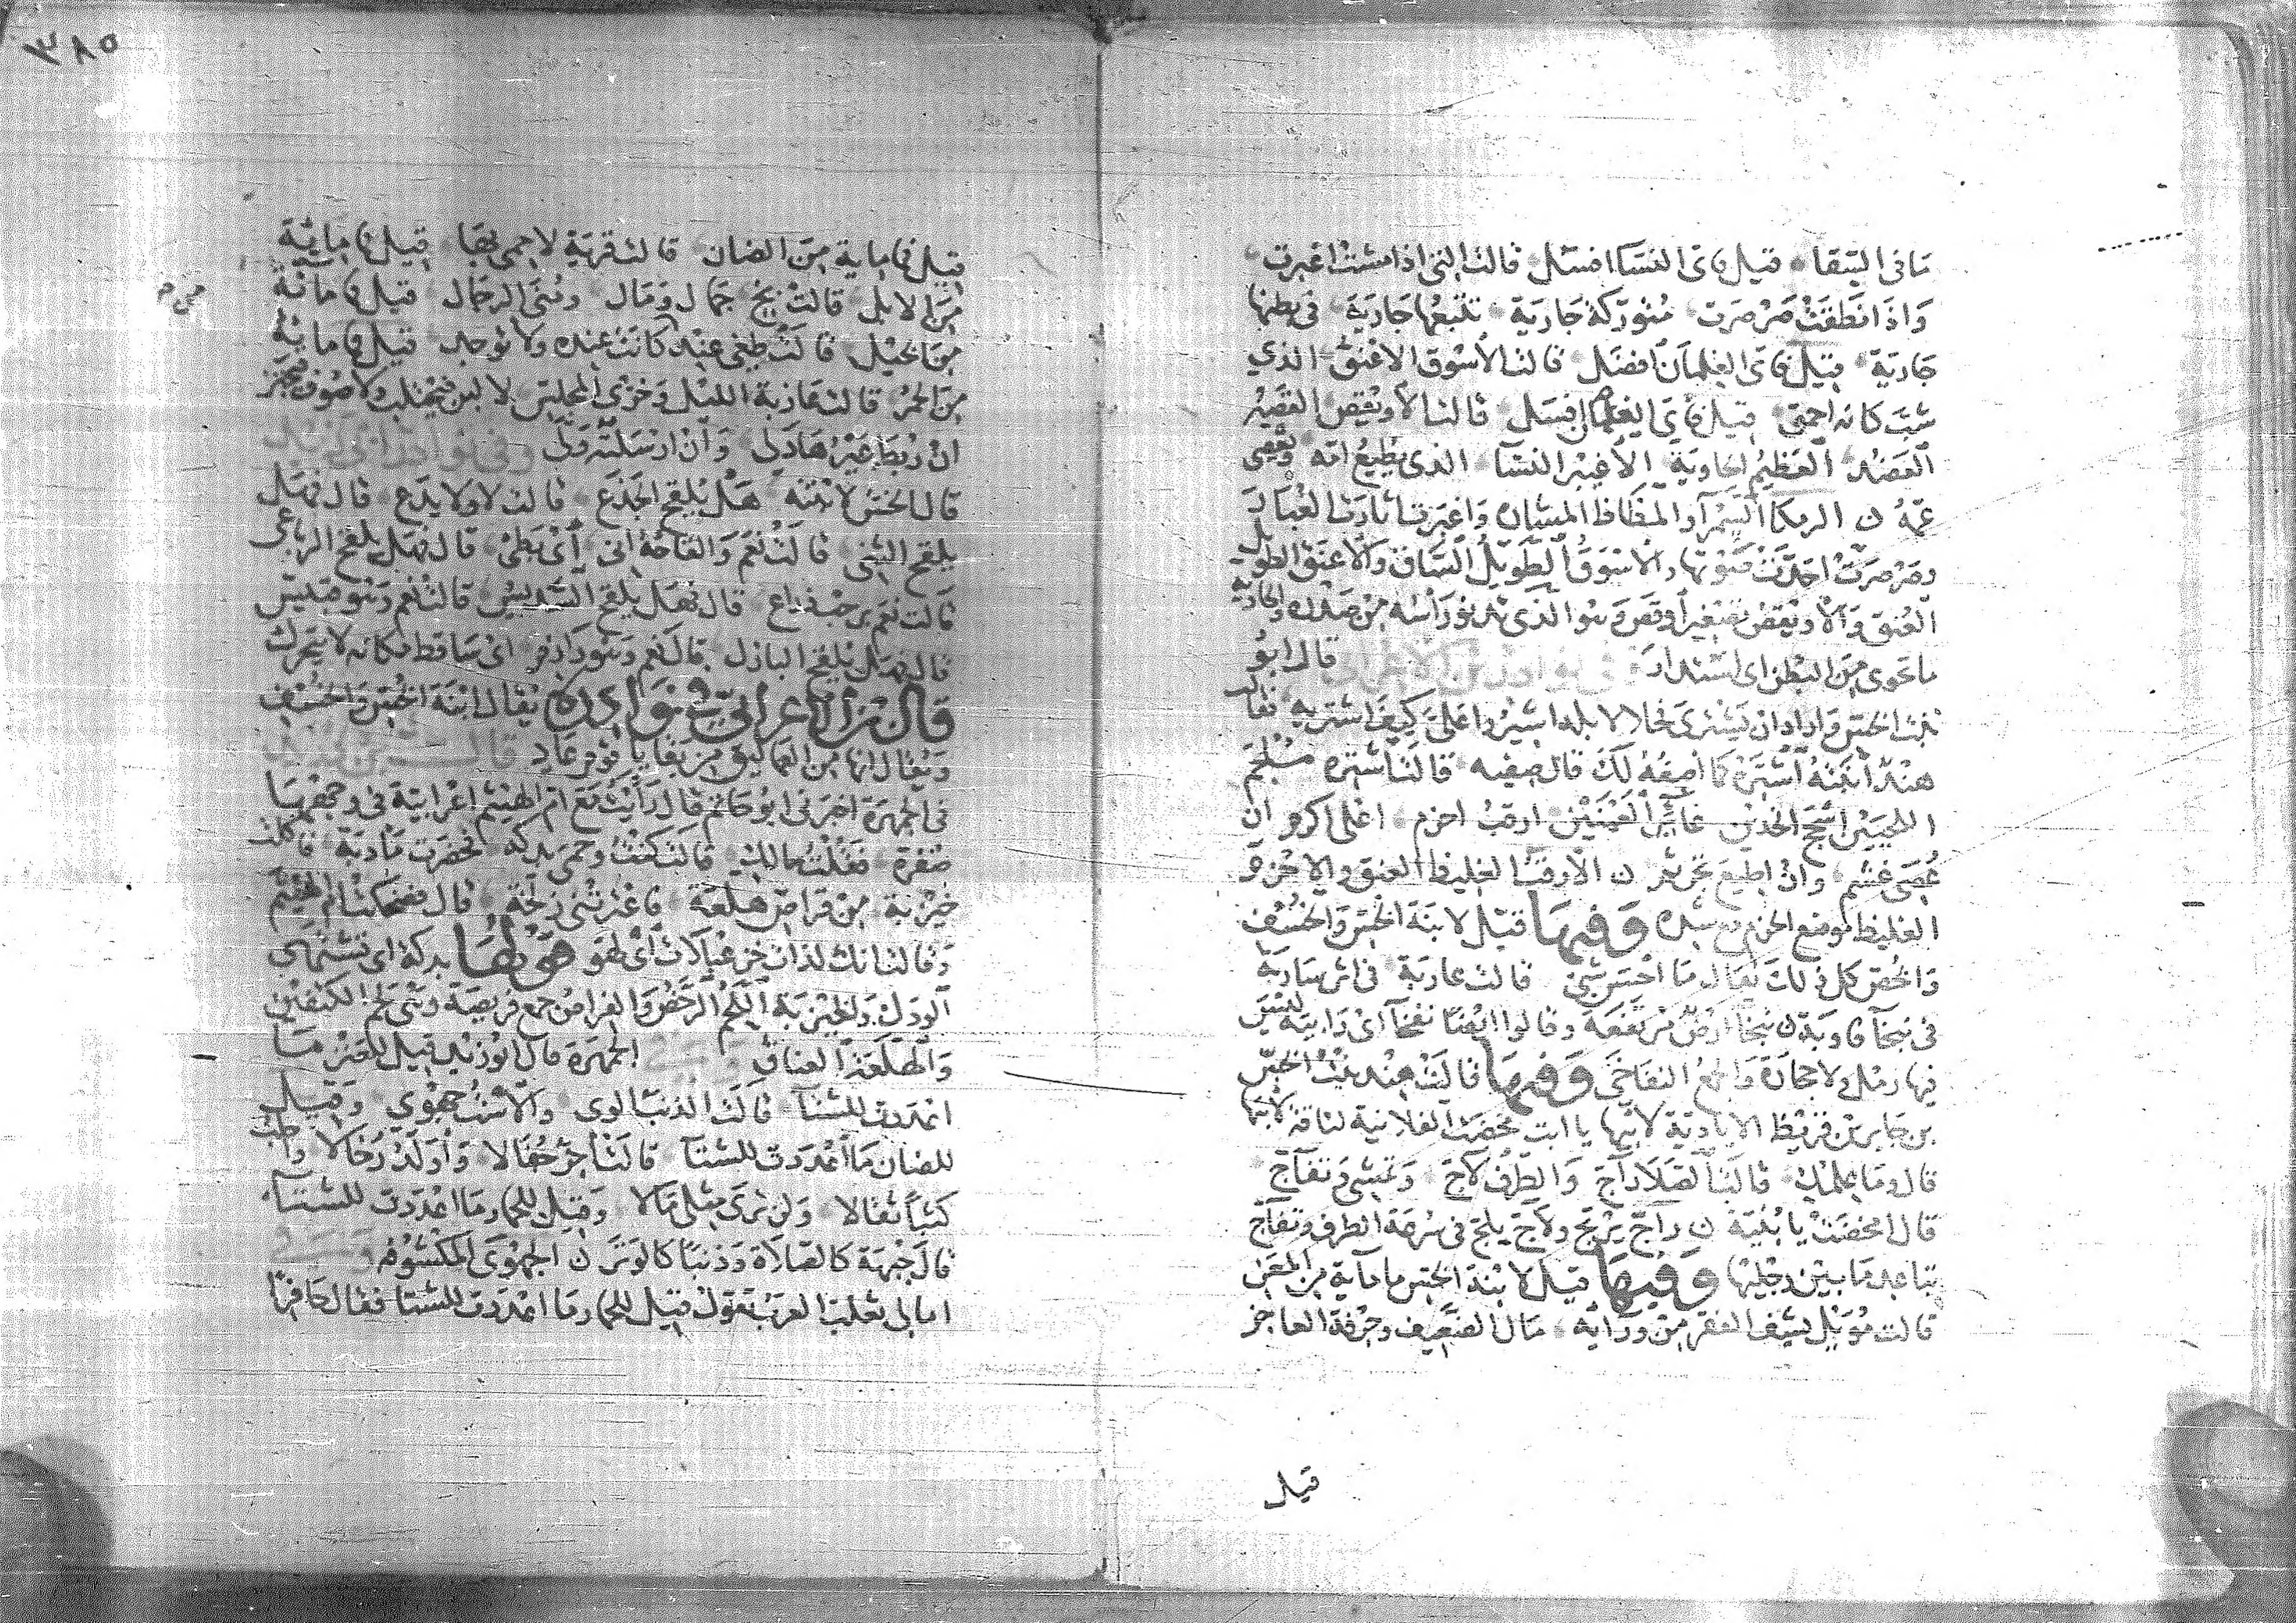 ما في السقا قيل فاى النسا افسل قالت التى اذا مشت اغبرت
واذا نطقت صرصرت متوركة جارية تتبعها جارية في بطنها
جارية قيل فاى الغلمان افضل قالت الاسوق الاعنق الذي
شب كانه احمق قيل فاى الغلمان افسل قالت الاويقص القصير
العضد العظيم الحاوية الاغيبر النسآ الذى يطيع امه ويعصى
عمه ن الرمكا السمرآ والمظاظ المشاره واغبرت اثارت الغبار
وصرصرت احدت صوتها والاسوق الطويل الساق والاعنق الطويل
العنق والاويقص تصغير اوقص وهو الذى يدنو راسه من صدره والحاوية
ما تحوى من البطن اى استدار قال ابو
بنت الخس واراد ان يشترى فحلا لابله اشيروا على كيف اشتريه فقالت
هند ابنته اشتره كما اصفه لك قال صفيه قالت اشتره ملجم
اللحيين اسجح الخدين غائر العينين ارقب احزم اعلى اكوم ان
عصى غشم وان اطيع تجرثم ن الارقب الغليظ العنق والاحزم
الغليظ موضع الحزم مع شده وفيها قيل لابنة الخس والخسف
والخص كل ذلك يقال ما احسن شئ قالت غادية في اثر سارية
في نبخآ قاوية ن نبخآ ارض مرتفعة وقالوا ايضا نفخآ اى رابية ليس
فيها رمل ولا حجارة والجمع النفاخى وفيها قالت هند بنت الخس
بن جابر بن قريط الايادية لابيها يا ابت مخضت الفلانية لناقة لابيها
قال وما علمك قالت الصلا راج والطرف لاج وتمشى وتفاج
قال امخضت يا بنية ن راج يرتج ولاج يلج في سرعة الطرف وتفاج
تباعد ما بين رجليها وفيها قيل لابنة الخس ما ماية من المعز
قالت مويل يشف الفقر من ورائه مال الضعيف وحرفة العاجز
قيل
٣٨٥
قيل فما ماية من الضان قالت قرية لا حمى بها قيل فما ماية
من الابل قالت بخ جمال ومال ومنى الرجال قيل فما مائة
من الخيل قالت طغى عند كانت عنده ولا توجد قيل فما ماية
من الحمر قالت عازبة الليل وخزى المجلس لا لبن فيحتلب ولا صوف فيجتز
ان ربط عيرها دلى وان ارسلته ولى وفى نوادر ابى زيد
قال الخس لابنته هل يلقح الجذع قالت لا ولا يدع قال فهل
يلقح الثنى قالت نعم والقاحه انى اى بطئ قال فهل يلقح الرباعى
قالت نعم برحب ذراع قال فهل يلقح السديس قالت نعم وهو قبيس
قال فهل يلقح البازل قال نعم وهو رازم اى ساقط مكانه لا يتحرك
قال ابن الاعرابي في نوادره يقال ابنة الخس والخسف
ويقال انها من العماليق من بقايا قوم عاد
فى الجمهرة اخبرنى ابو حاتم قال رايت مع ام الهيثم اعرابية فى وجهها
صفرة فقلت مالك قالت كنت وحمى بدكة فحضرت مأدبة فاكلت
خيزبة من فراص هلعة فاعترتنى زلخة قال فضحكت ام الهيثم
وقالت انك لذات خزعبلات اى لهو قولها بدكة اى تشتهى
الودك والخيزبة اللحم الرخص والفراص جمع فريصة وهى لحم الكتفين
والهلعة العناق الجمهرة قال ابو زيد قيل للعنز ما
اعددت للشتآ قالت الذنب الوى والاست جهوى وقيل
للضان ما اعددت للشتآ قالت اجز جفالا واولد رخالا واحلب
كثبا ثقالا ولن ترى مثلى مالا وقيل للحمار ما اعددت للشتآ
قال جبهة كالصلاة وذنبا كالوتر ن الجهوى المكشوف
امالى ثعلب العرب تقول قيل للحمار ما اعددت للشتا فقال حافرا